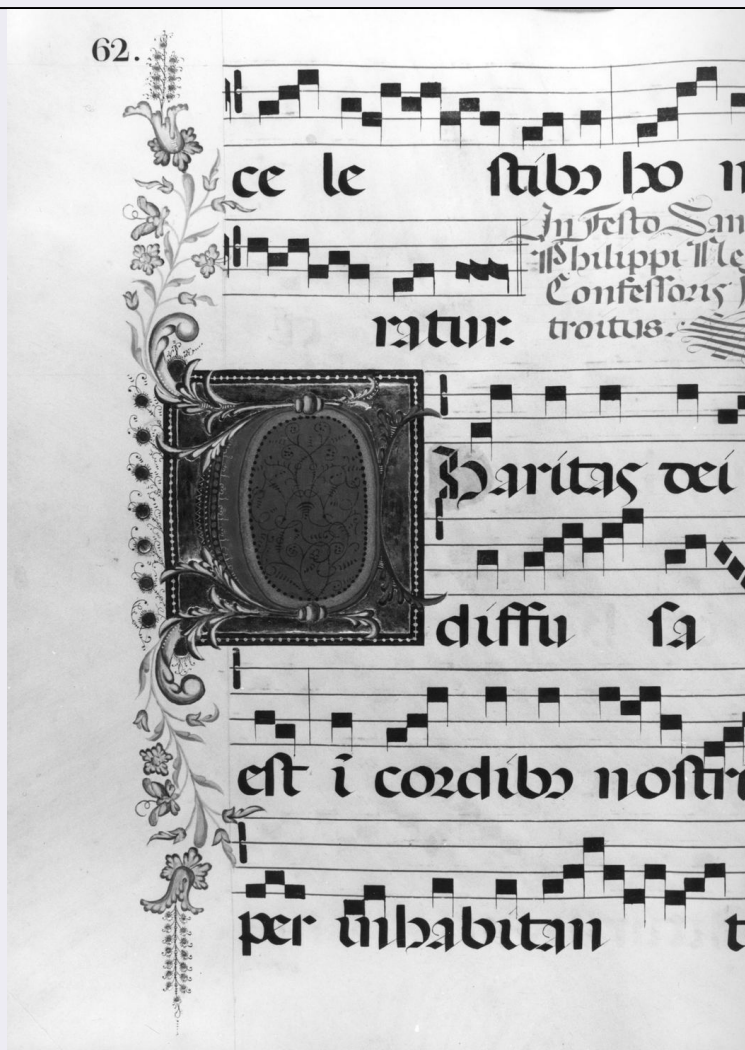 62.
ce le stibꝯ bo n
In Festo San
Philippi Ne
Confessoris I
troitus.
ratur.
CHaritas dei
diffu sa
est ĩ cordibꝯ nostri
per inhabitan t